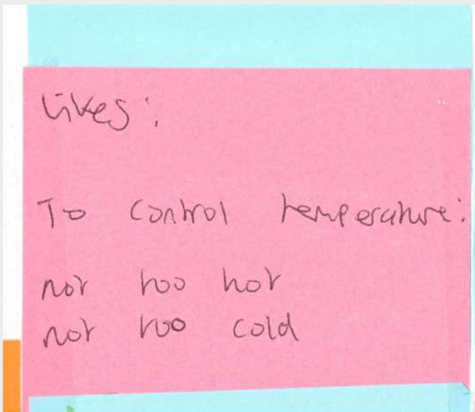 Likes:
To control temperature:
not too hot
not too cold